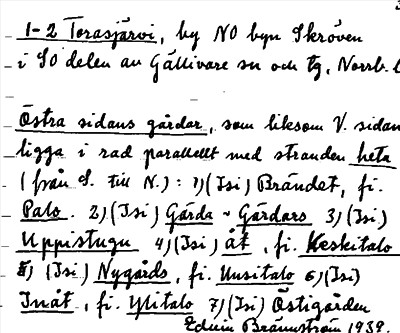 1-2 Terasjärvi, by NO byn Skröven
i SO delen av Gällivare sn och tg, Norrb. l
Östra sidans gårdar, som liksom V. sidan
ligga i rad parallellt med stranden heta
(från S. till N.): 1) (Isi) Brändet, fi.
Palo. 2) (Isi) Gårda - Gårdars 3) (Isi)
Uppistugu 4) (Isi) åt, fi. Keskitalo
5) (Isi) Nygårds, fi. Uusitalo 6) (Isi)
Inåt, fi. Ylitalo 7) (Isi) Östigården
Edvin Brännström 1939.